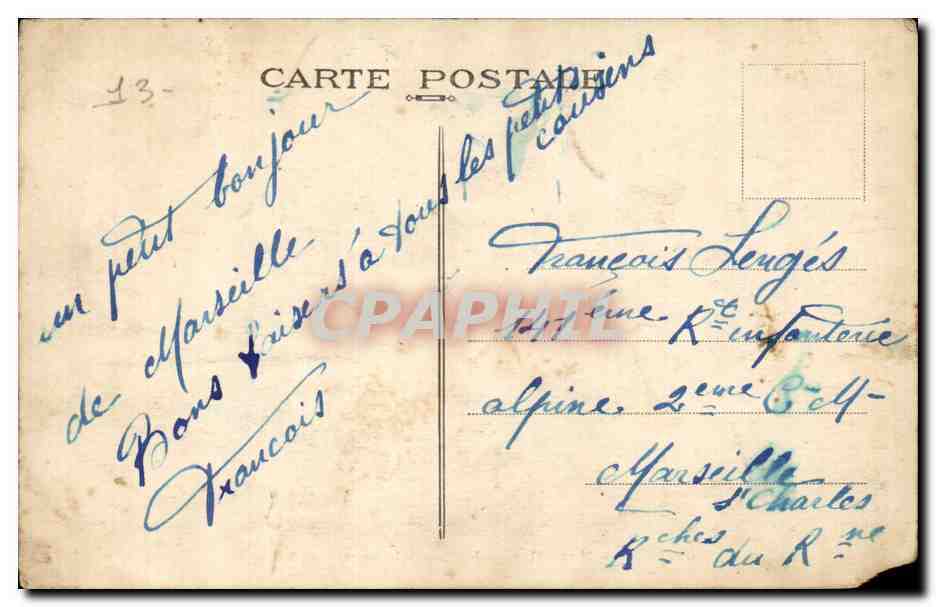 CARTE POSTALE
13-
un petit bonjour
de Marseille
Bons baisers à tous les petits
cousins
François
François Lengés
141ème Rt infanterie
alpine 2eme Cie M-
Marseille
St Charles
du Rne
CPAPHIL